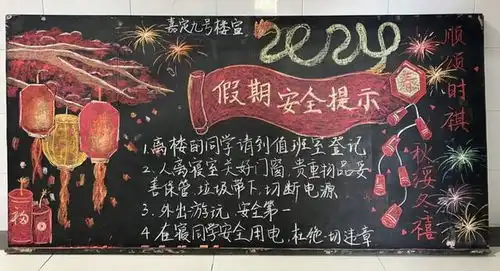 嘉定九号楼宣
2024
假期安全提示
1.离楼的同学请到值班室登记
2.人离寝室关好门窗,贵重物品妥
善保管,垃圾带下,切断电源
3.外出游玩 安全第一
4.在寝同学安全用电,杜绝一切违章
顺颂时祺
秋绥冬禧
春
福